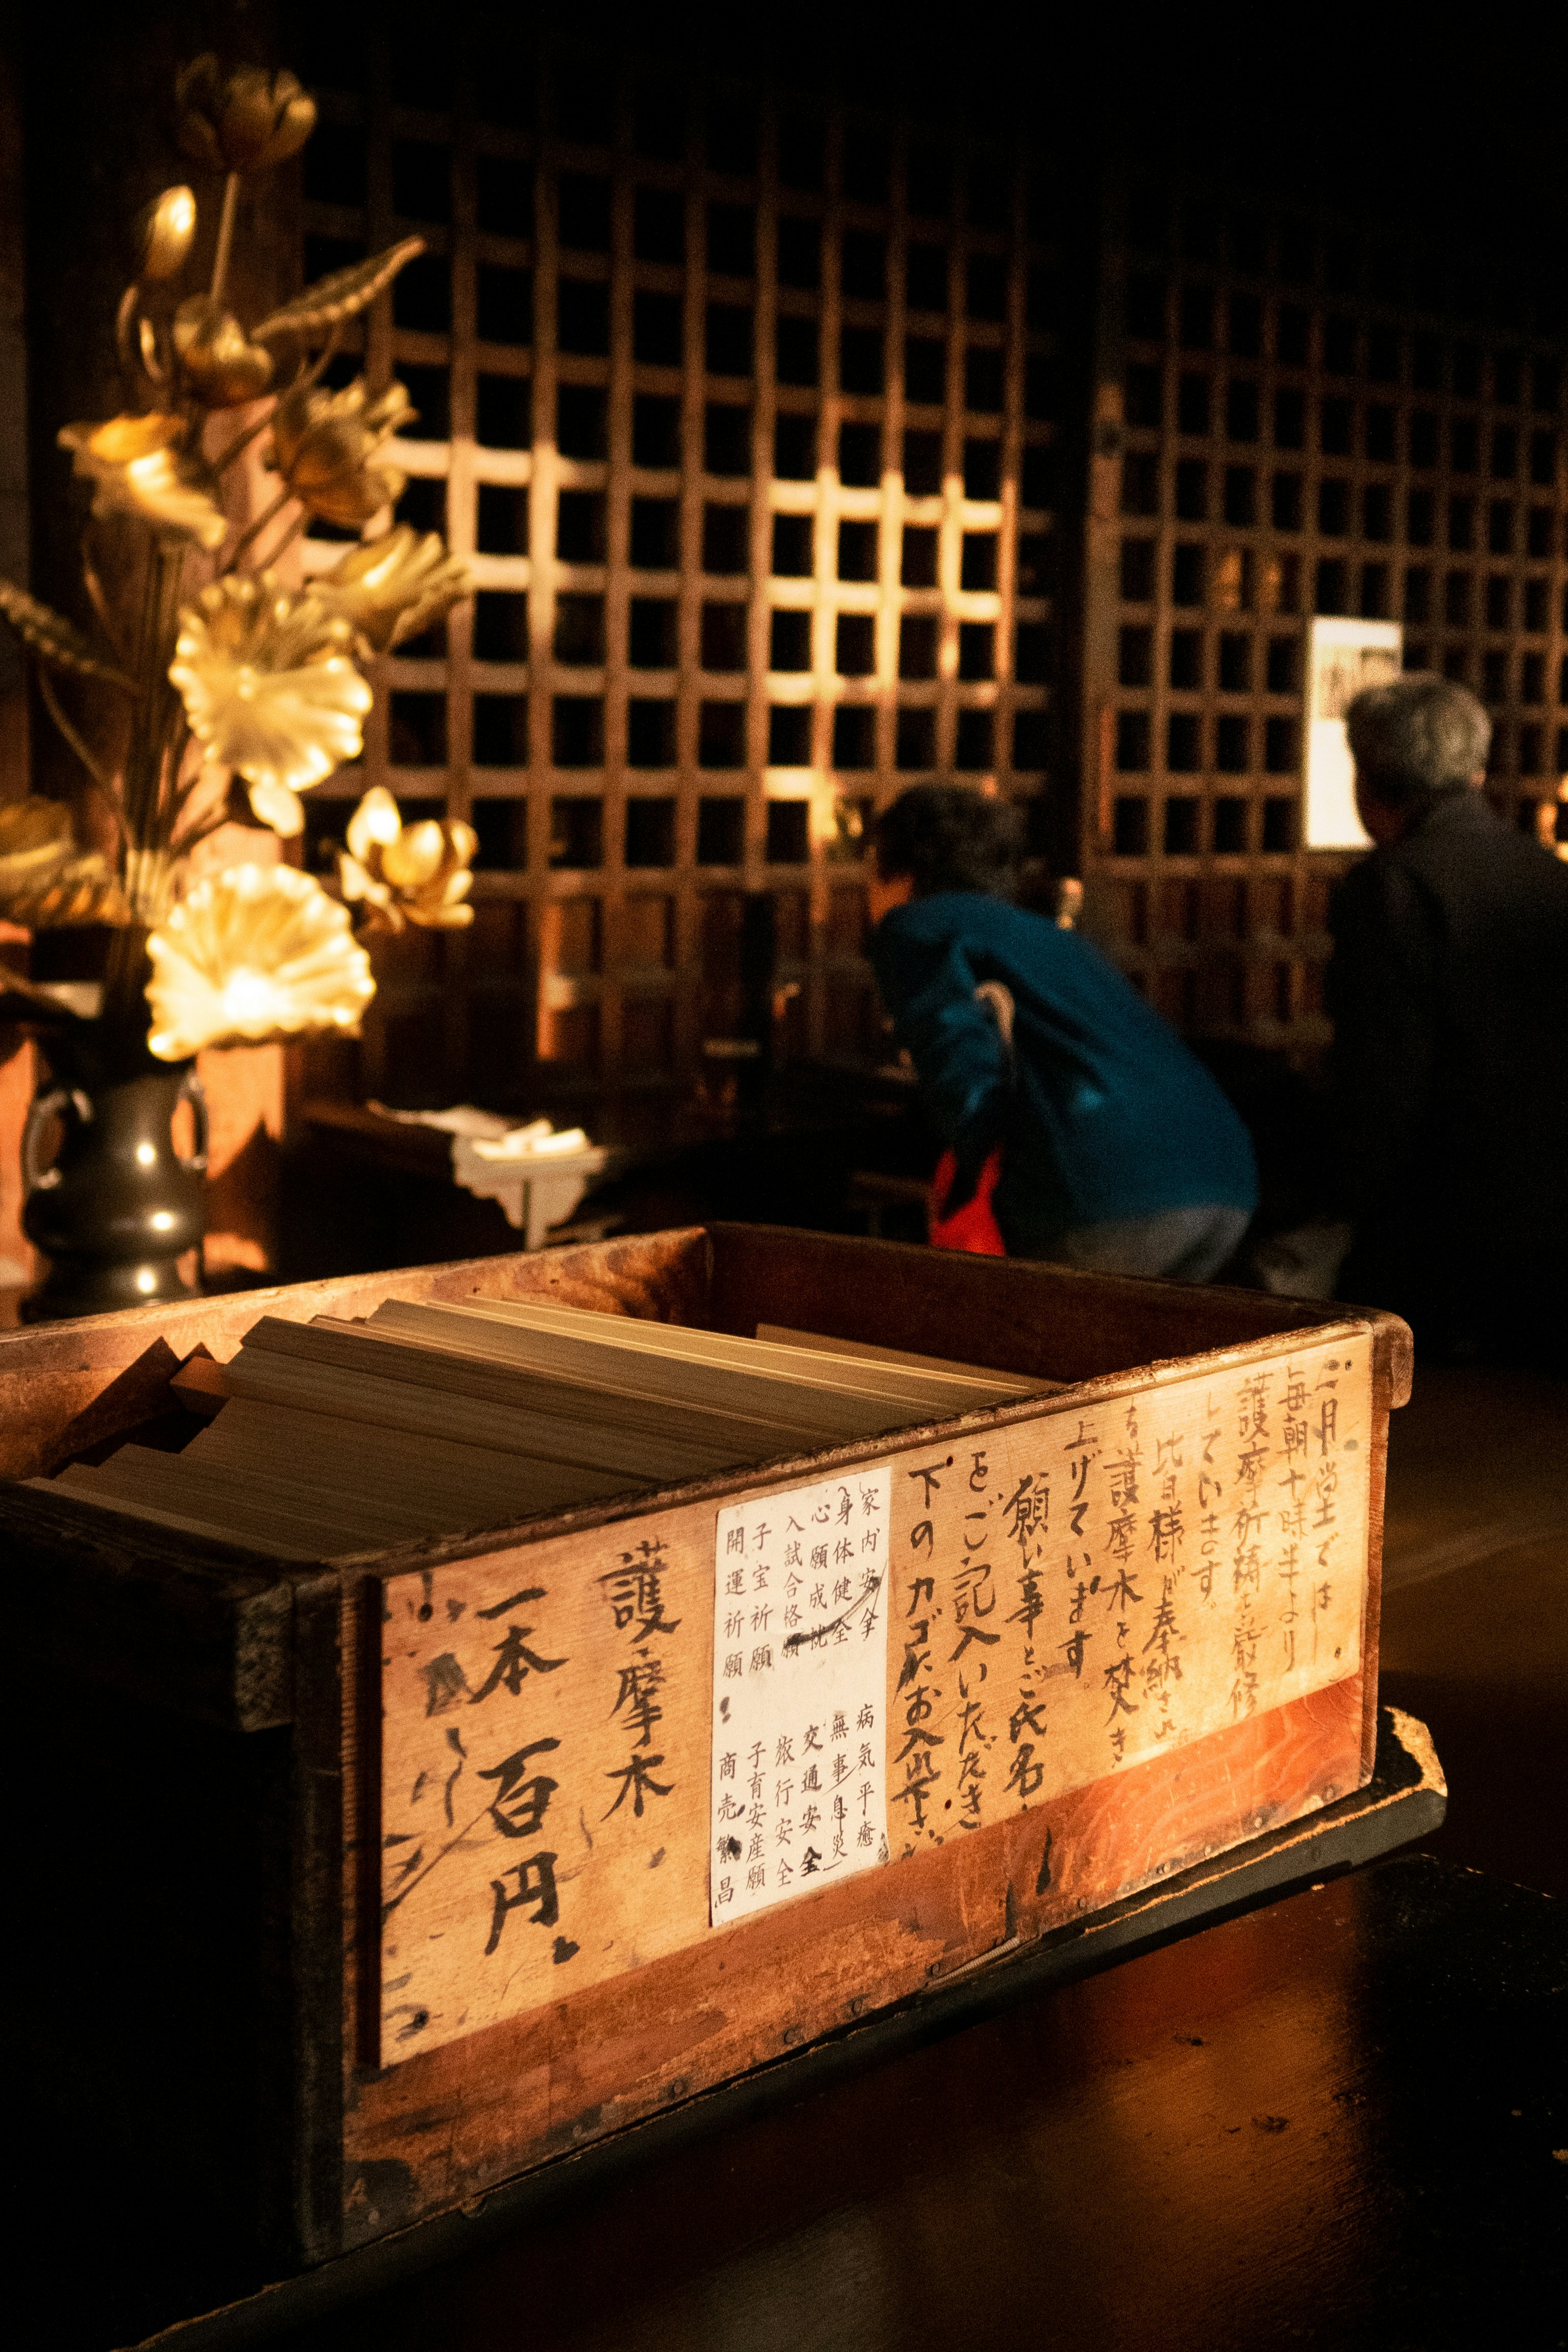 二月堂では
毎朝十時半より
護摩祈祷を厳修
しています。
皆様が奉納され
護摩木を焚き
上げています。
願い事とご氏名
をご記入いただき
下のカゴにお入れ下さい
家内安全
身体健全
心願成就
入試合格願
子宝祈願
開運祈願
病気平癒
無事息災
交通安全
旅行安全
子育安産願
商売繁昌
護摩木
一本 百円